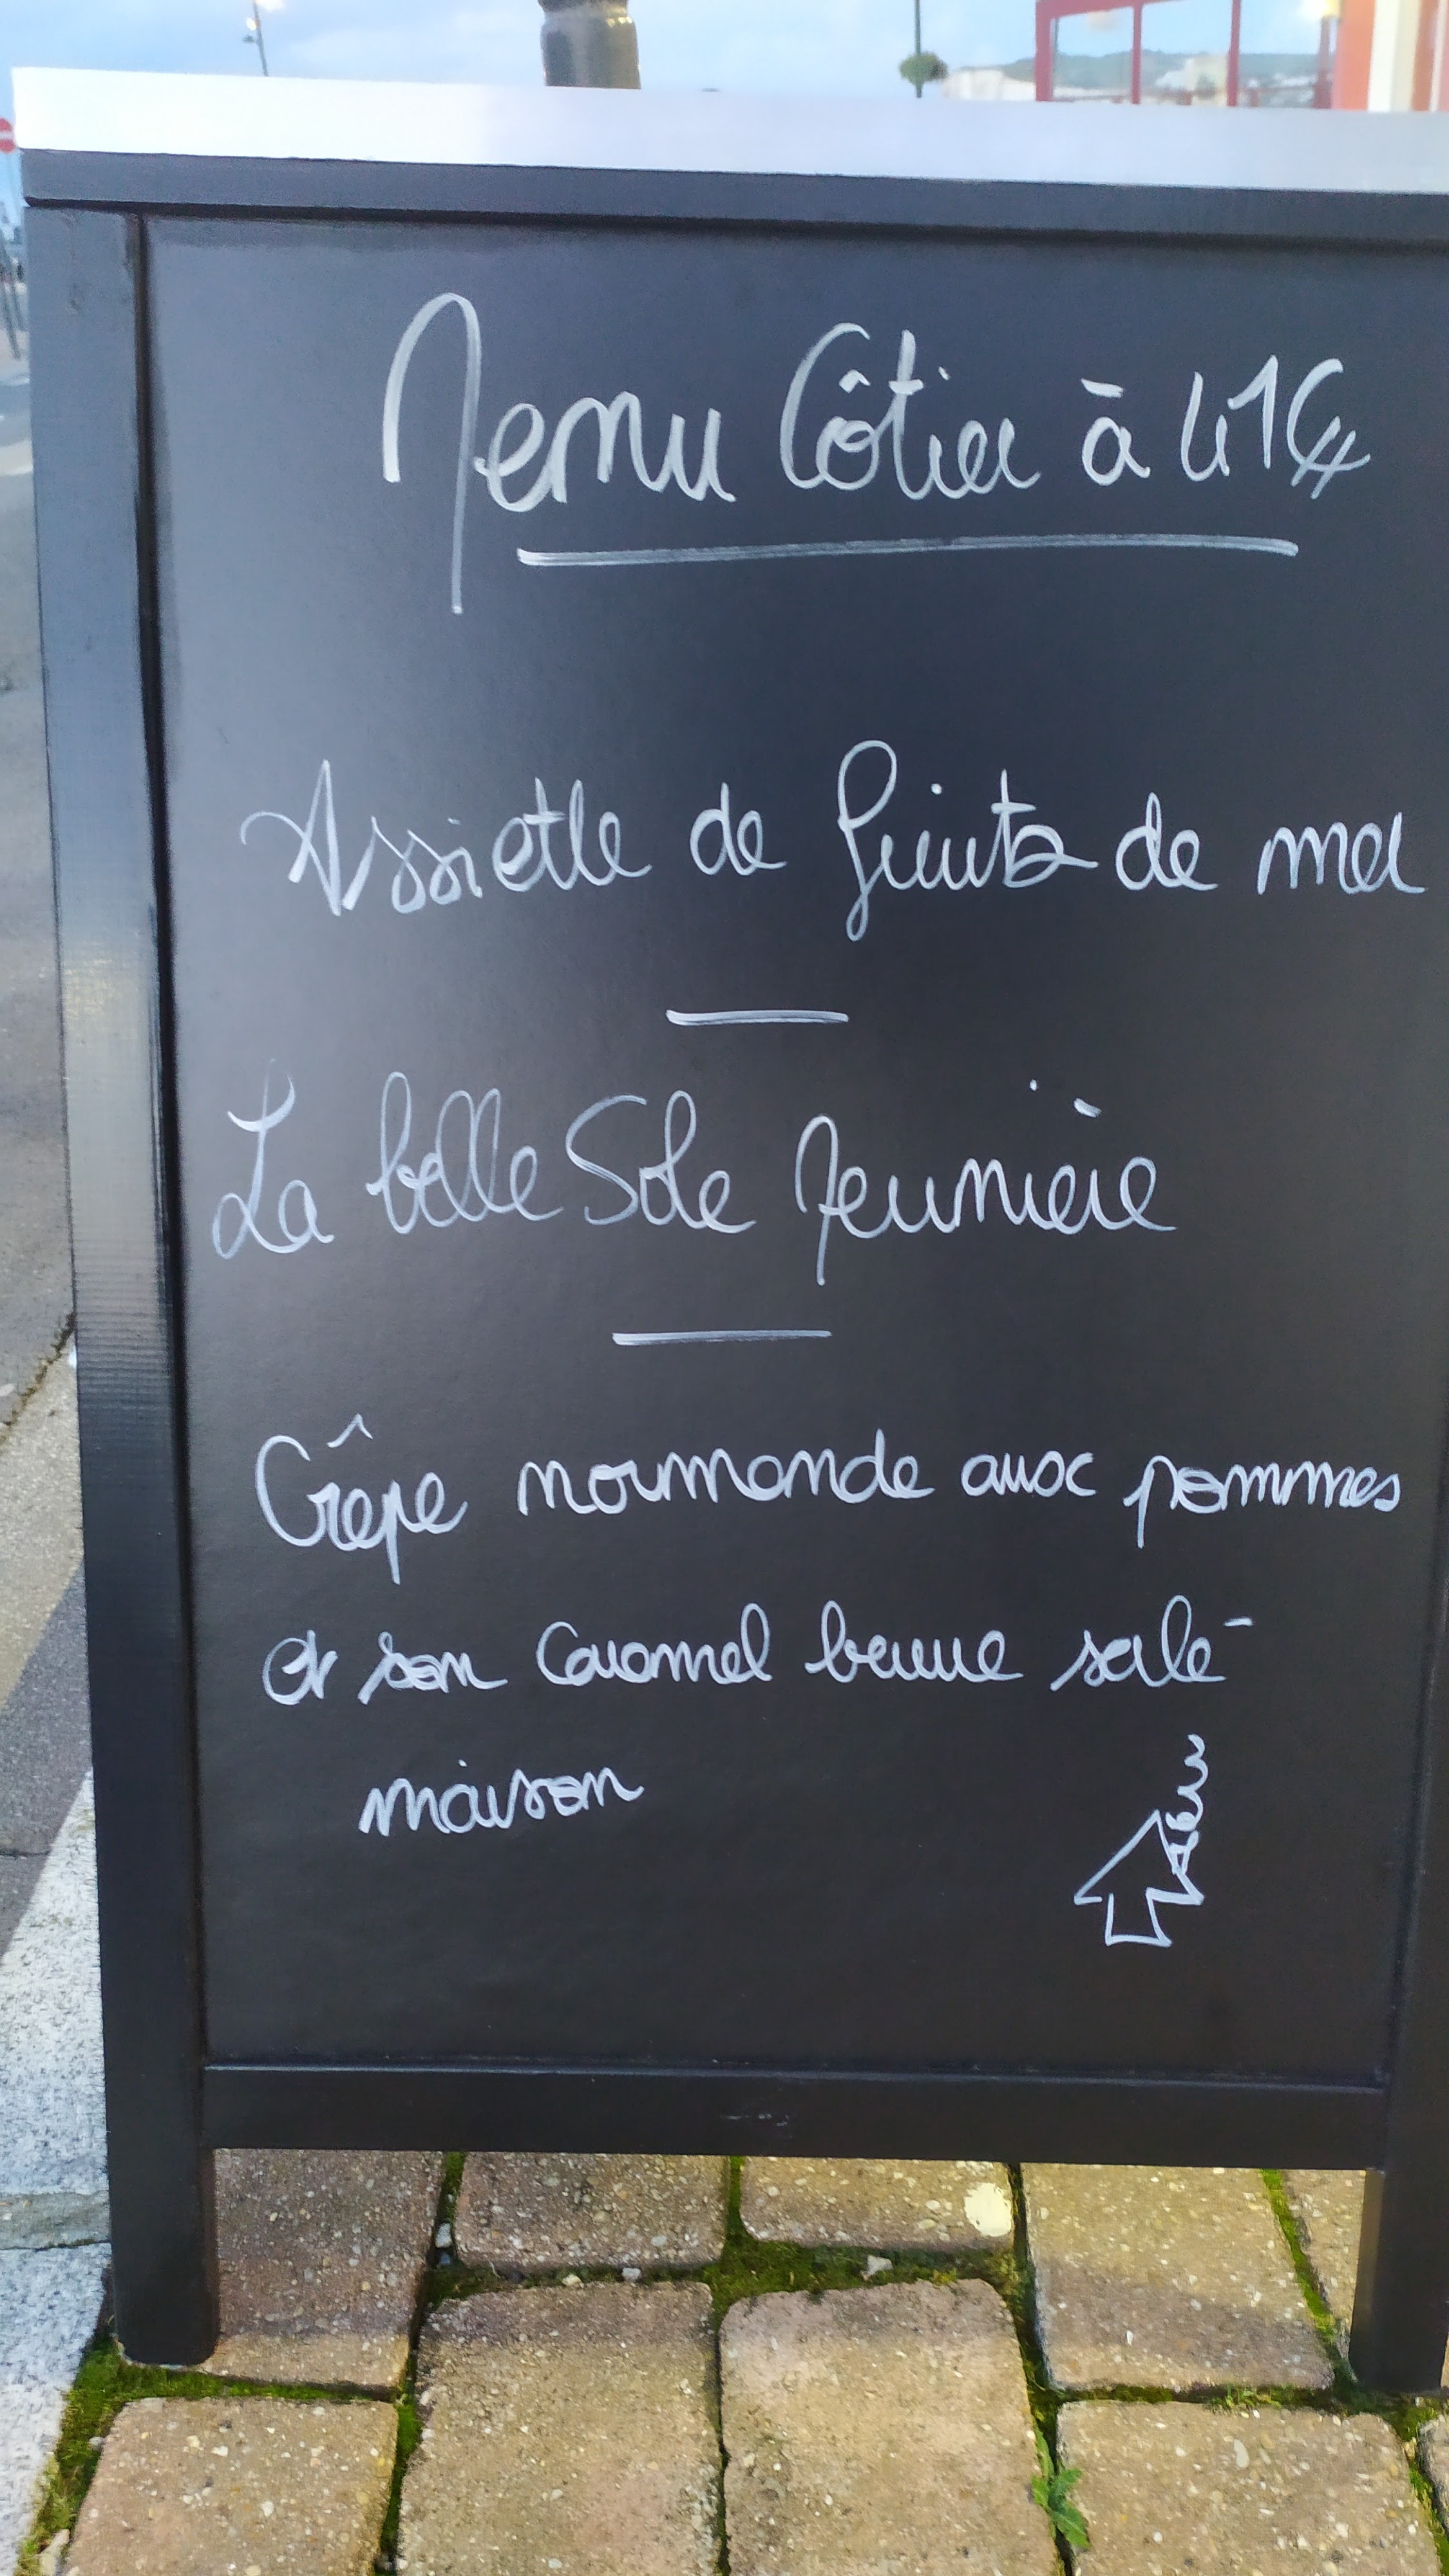 Menu Côtier à 41€
Assiette de fruits de mer
La belle Sole Meunière
Crêpe normande aux pommes
et son Caramel beurre salé
maison